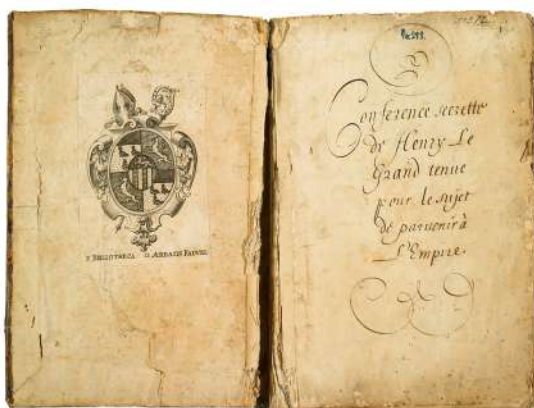 E BIBLIOTHECA D. ABBATIS FAUVEL
Conference secrette
de Henry Le
Grand tenue
pour le sujet
de parvenir à
L'Empire.